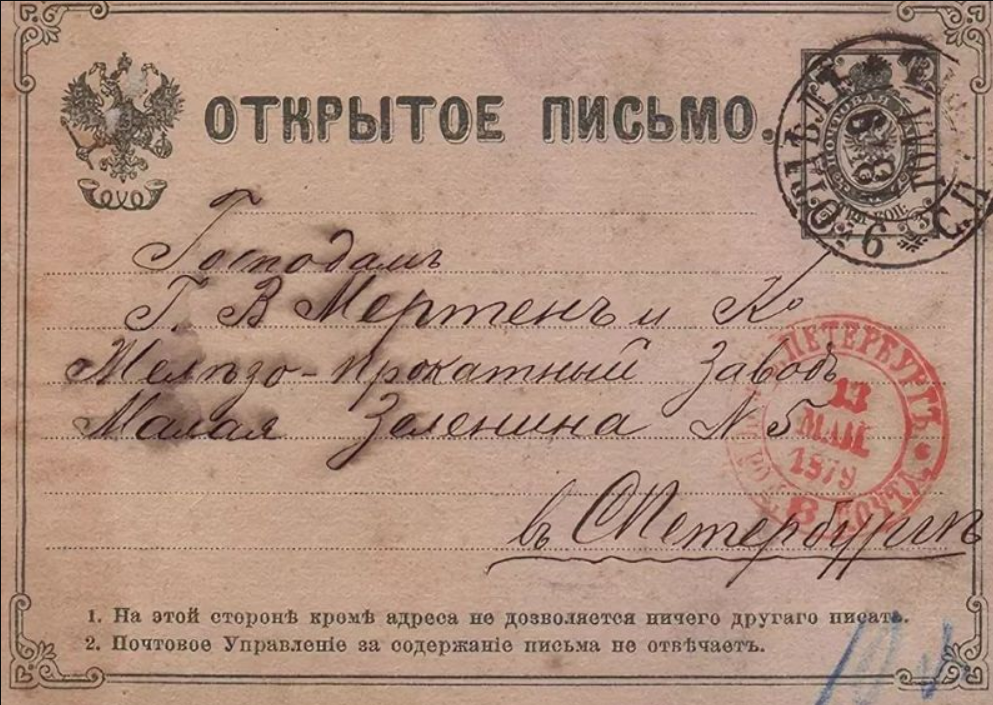 ОТКРЫТОЕ ПИСЬМО.
ПОЧТОВАЯ
ТРИ КОП.
3
6
Господамъ
Г. В Мертенъ и Ко
Желѣзо-прокатный Заводъ
Малая Зеленина N 5
въ СПетербургѣ
ПЕТЕРБУРГЪ
13
МАЯ
1879
ПОЧТА
1. На этой сторонѣ кромѣ адреса не дозволяется ничего другаго писать.
2. Почтовое Управленіе за содержаніе письма не отвѣчаетъ.